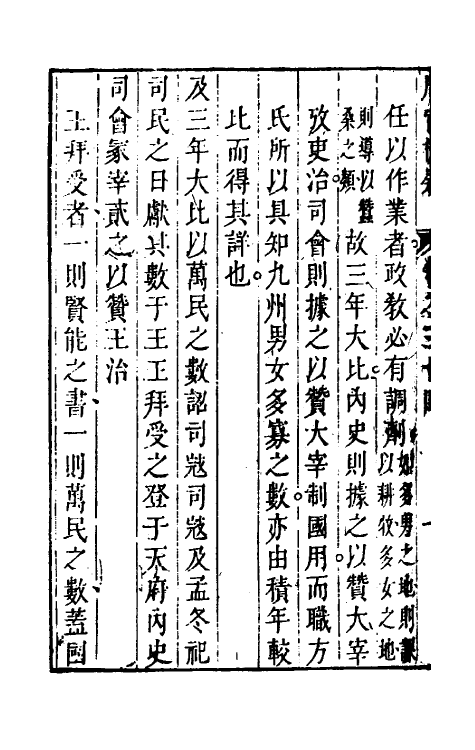 卷之三十四
任以作業者政教必有調劑如多男之地則課以耕牧多女之地
則導以蠶桑之類故三年大比內史則據之以贊大宰
攷吏治司會則據之以贊大宰制國用而職方
氏所以具知九州男女多寡之數亦由積年較
此而得其詳也
及三年大比以萬民之數詔司寇司寇及孟冬祀
司民之日獻其數于王王拜受之登于天府內史
司會冢宰貳之以贊王治
王拜受者一則賢能之書一則萬民之數蓋國